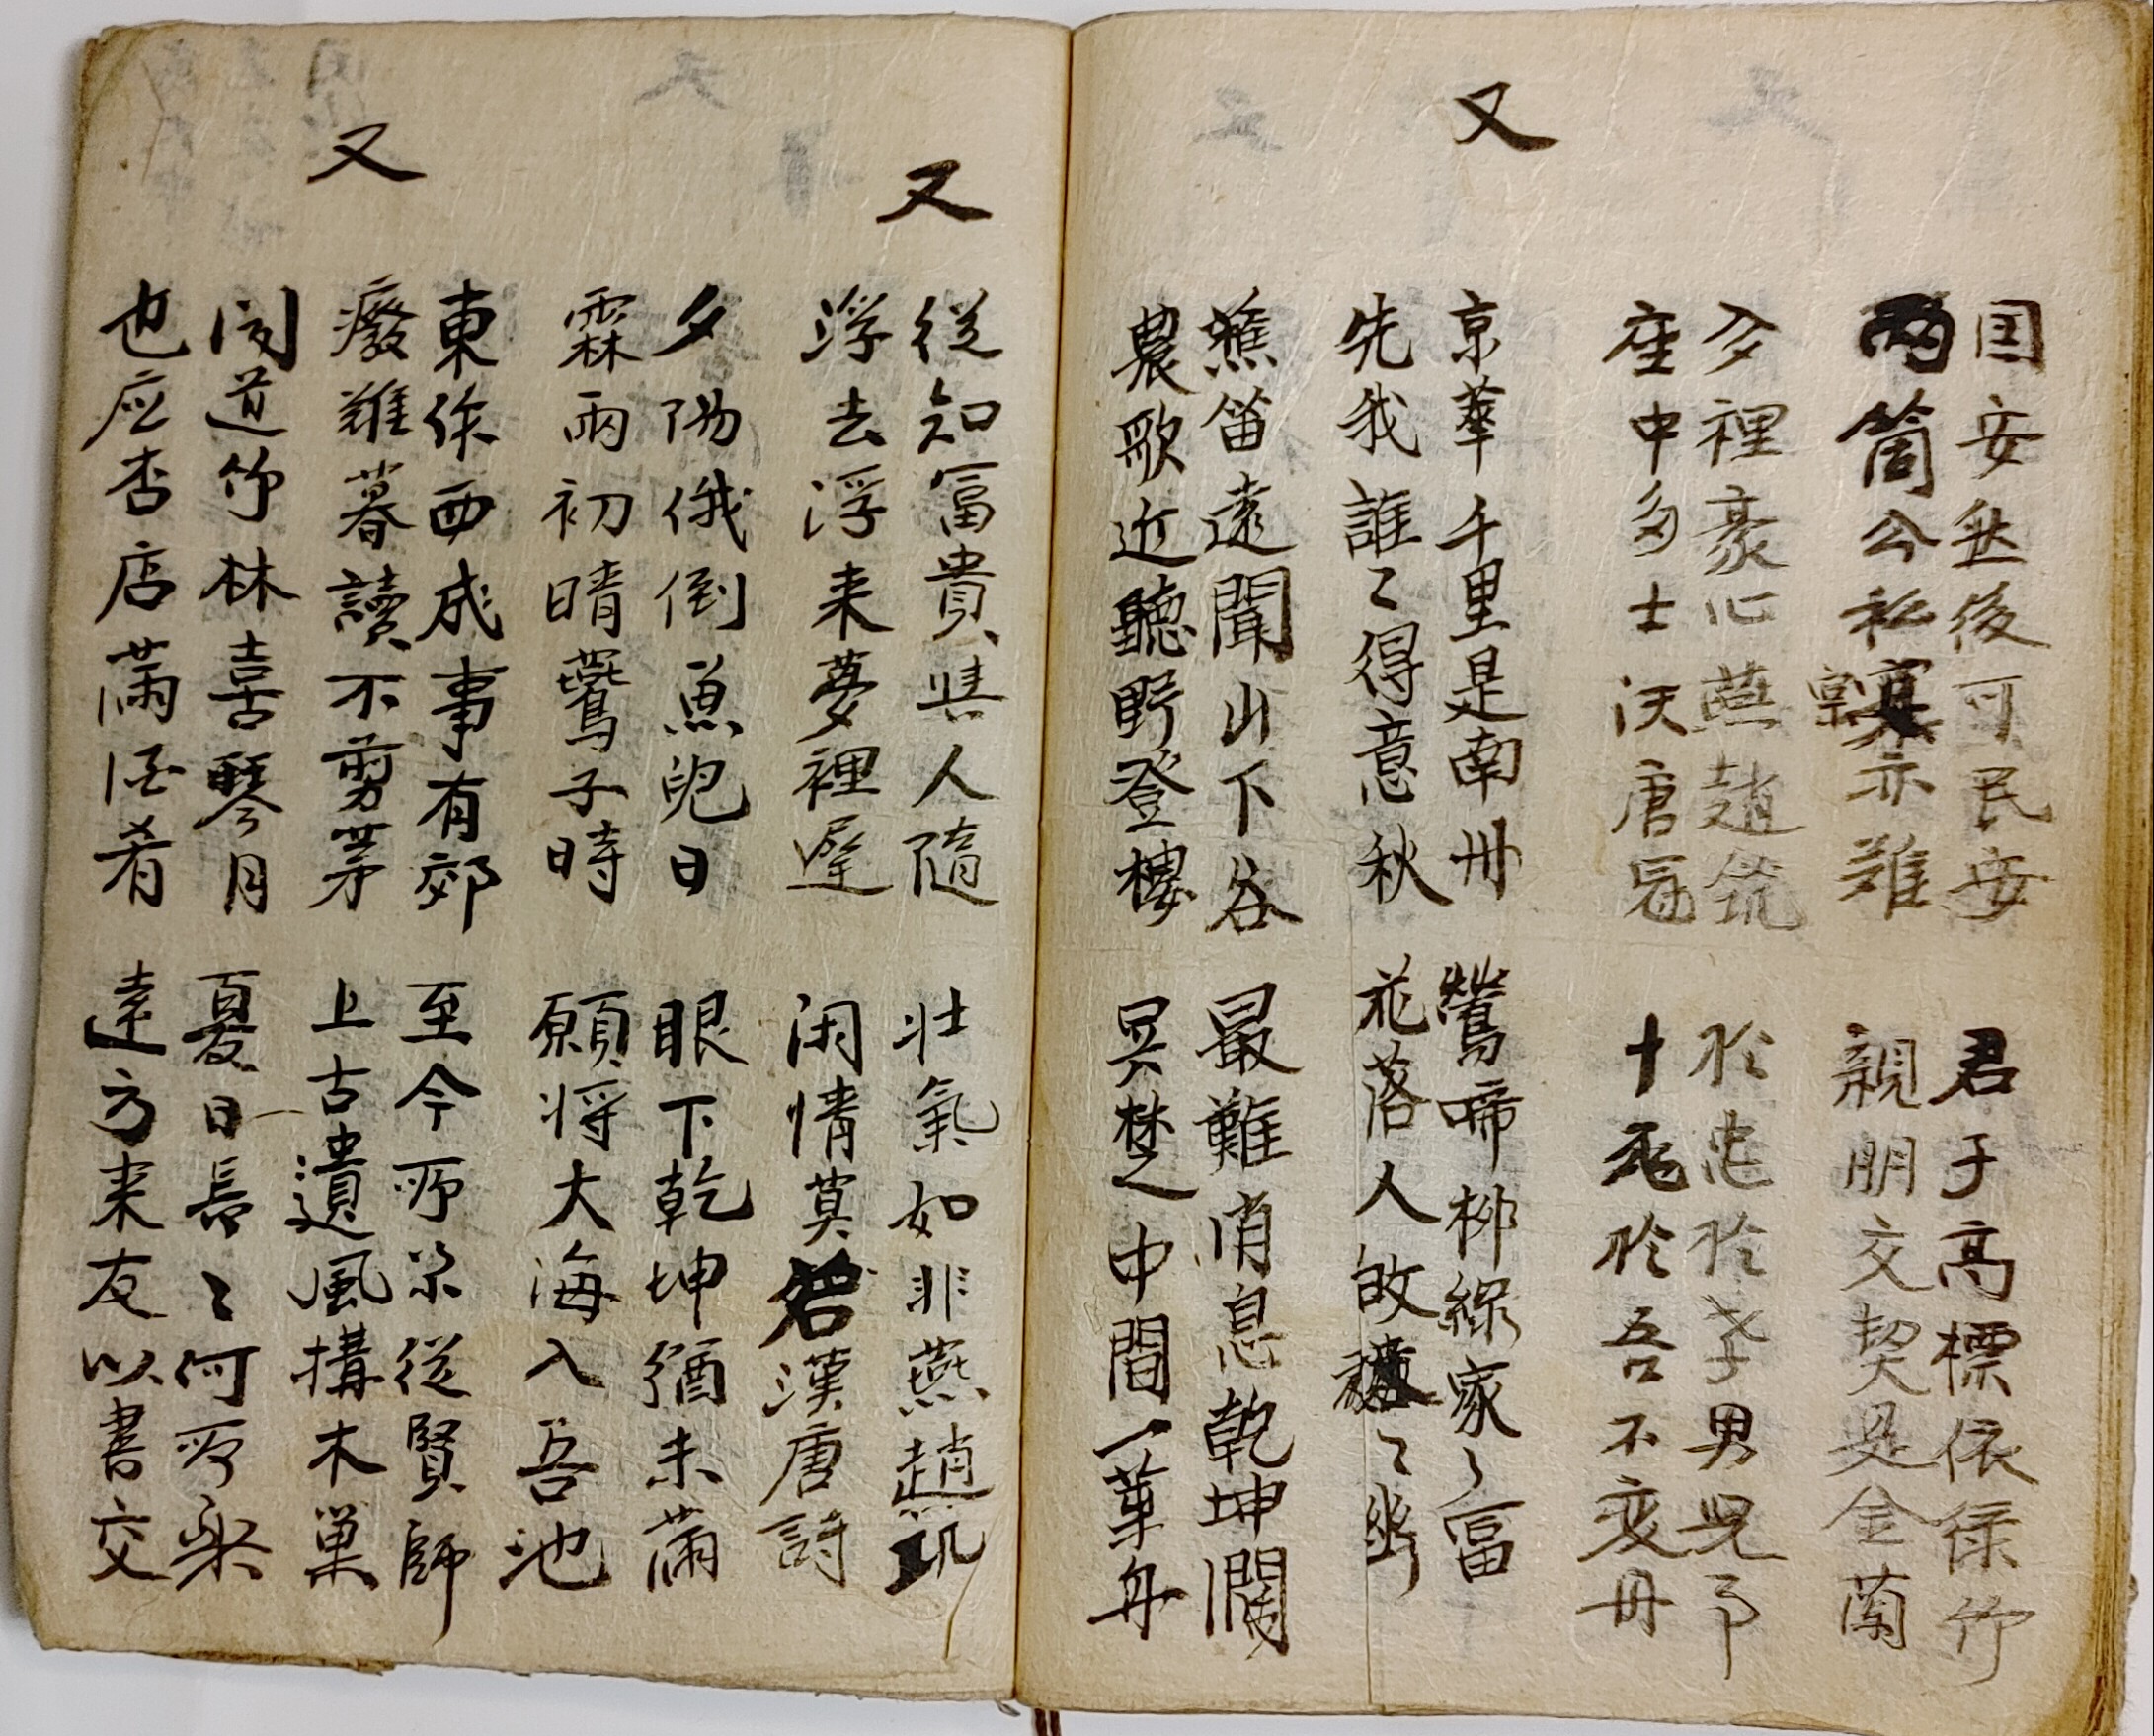 国安然後可民安 君子高標依綠竹
兩箇公私寧亦難 親朋交契是金蘭
多裡豪心燕趙筑 於忠於孝男兒事
座中多士漢唐冠 十死於吾不変丹
又
京華千里是南州 鶯啼柳綠家〻富
先我誰〻得意秋 花落人故〻幽
樵笛遠聞山下谷 最難消息乾坤濶
農歌近聽野登樓 吳楚中間一葉舟
又
從知冨貴與人隨 壯氣如非燕趙筑
浮去浮来夢裡遲 閑情莫若漢唐詩
夕陽俄倒魚兒日 眼下乾坤猶未滿
霖雨初晴鷰子時 願将大海入吾池
又
東作西成事有郊 至今所業從賢師
癈難暮讀不剪茅 上古遺風搆木巢
闻道竹林喜琴月 夏日長〻何所樂
也应杏店滿酒肴 遠方来友以書交